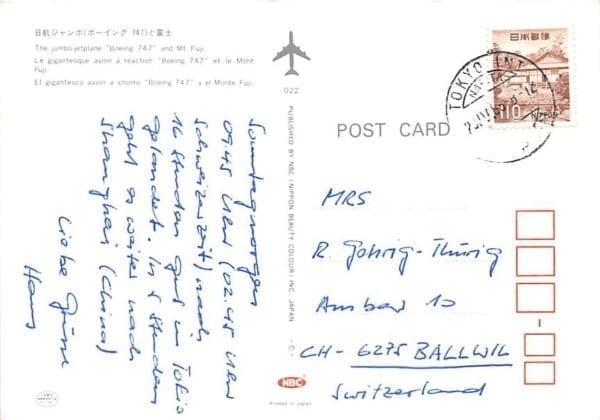 日航ジャンボ(ボーイング 747)と富士
The jumbo-jetplane "Boeing 747" and Mt. Fuji.
Le gigantesque avion à réaction "Boeing 747" et le Mont
Fuji.
El gigantesco avion a chorro "Boeing 747" y el Monte Fuji.
022
PUBLISHED BY NBC (NIPPON BEAUTY COLOUR) INC. JAPAN
-C-
POST CARD
日本郵便
110
NIPPON
TOKYO INT
Sonntagmorgen
09.45 Uhr (02.45 Uhr
Schweizerzeit) nach
16 Stunden gut in Tokio
gelandet. In 5 Stunden
geht es weiter nach
Shanghai (China)
Liebe Grüsse
Hans
MRS
R. Gohrig-Thürig
Ambar 10
CH - 6275 BALLWIL
Switzerland
NBC
Printed in Japan